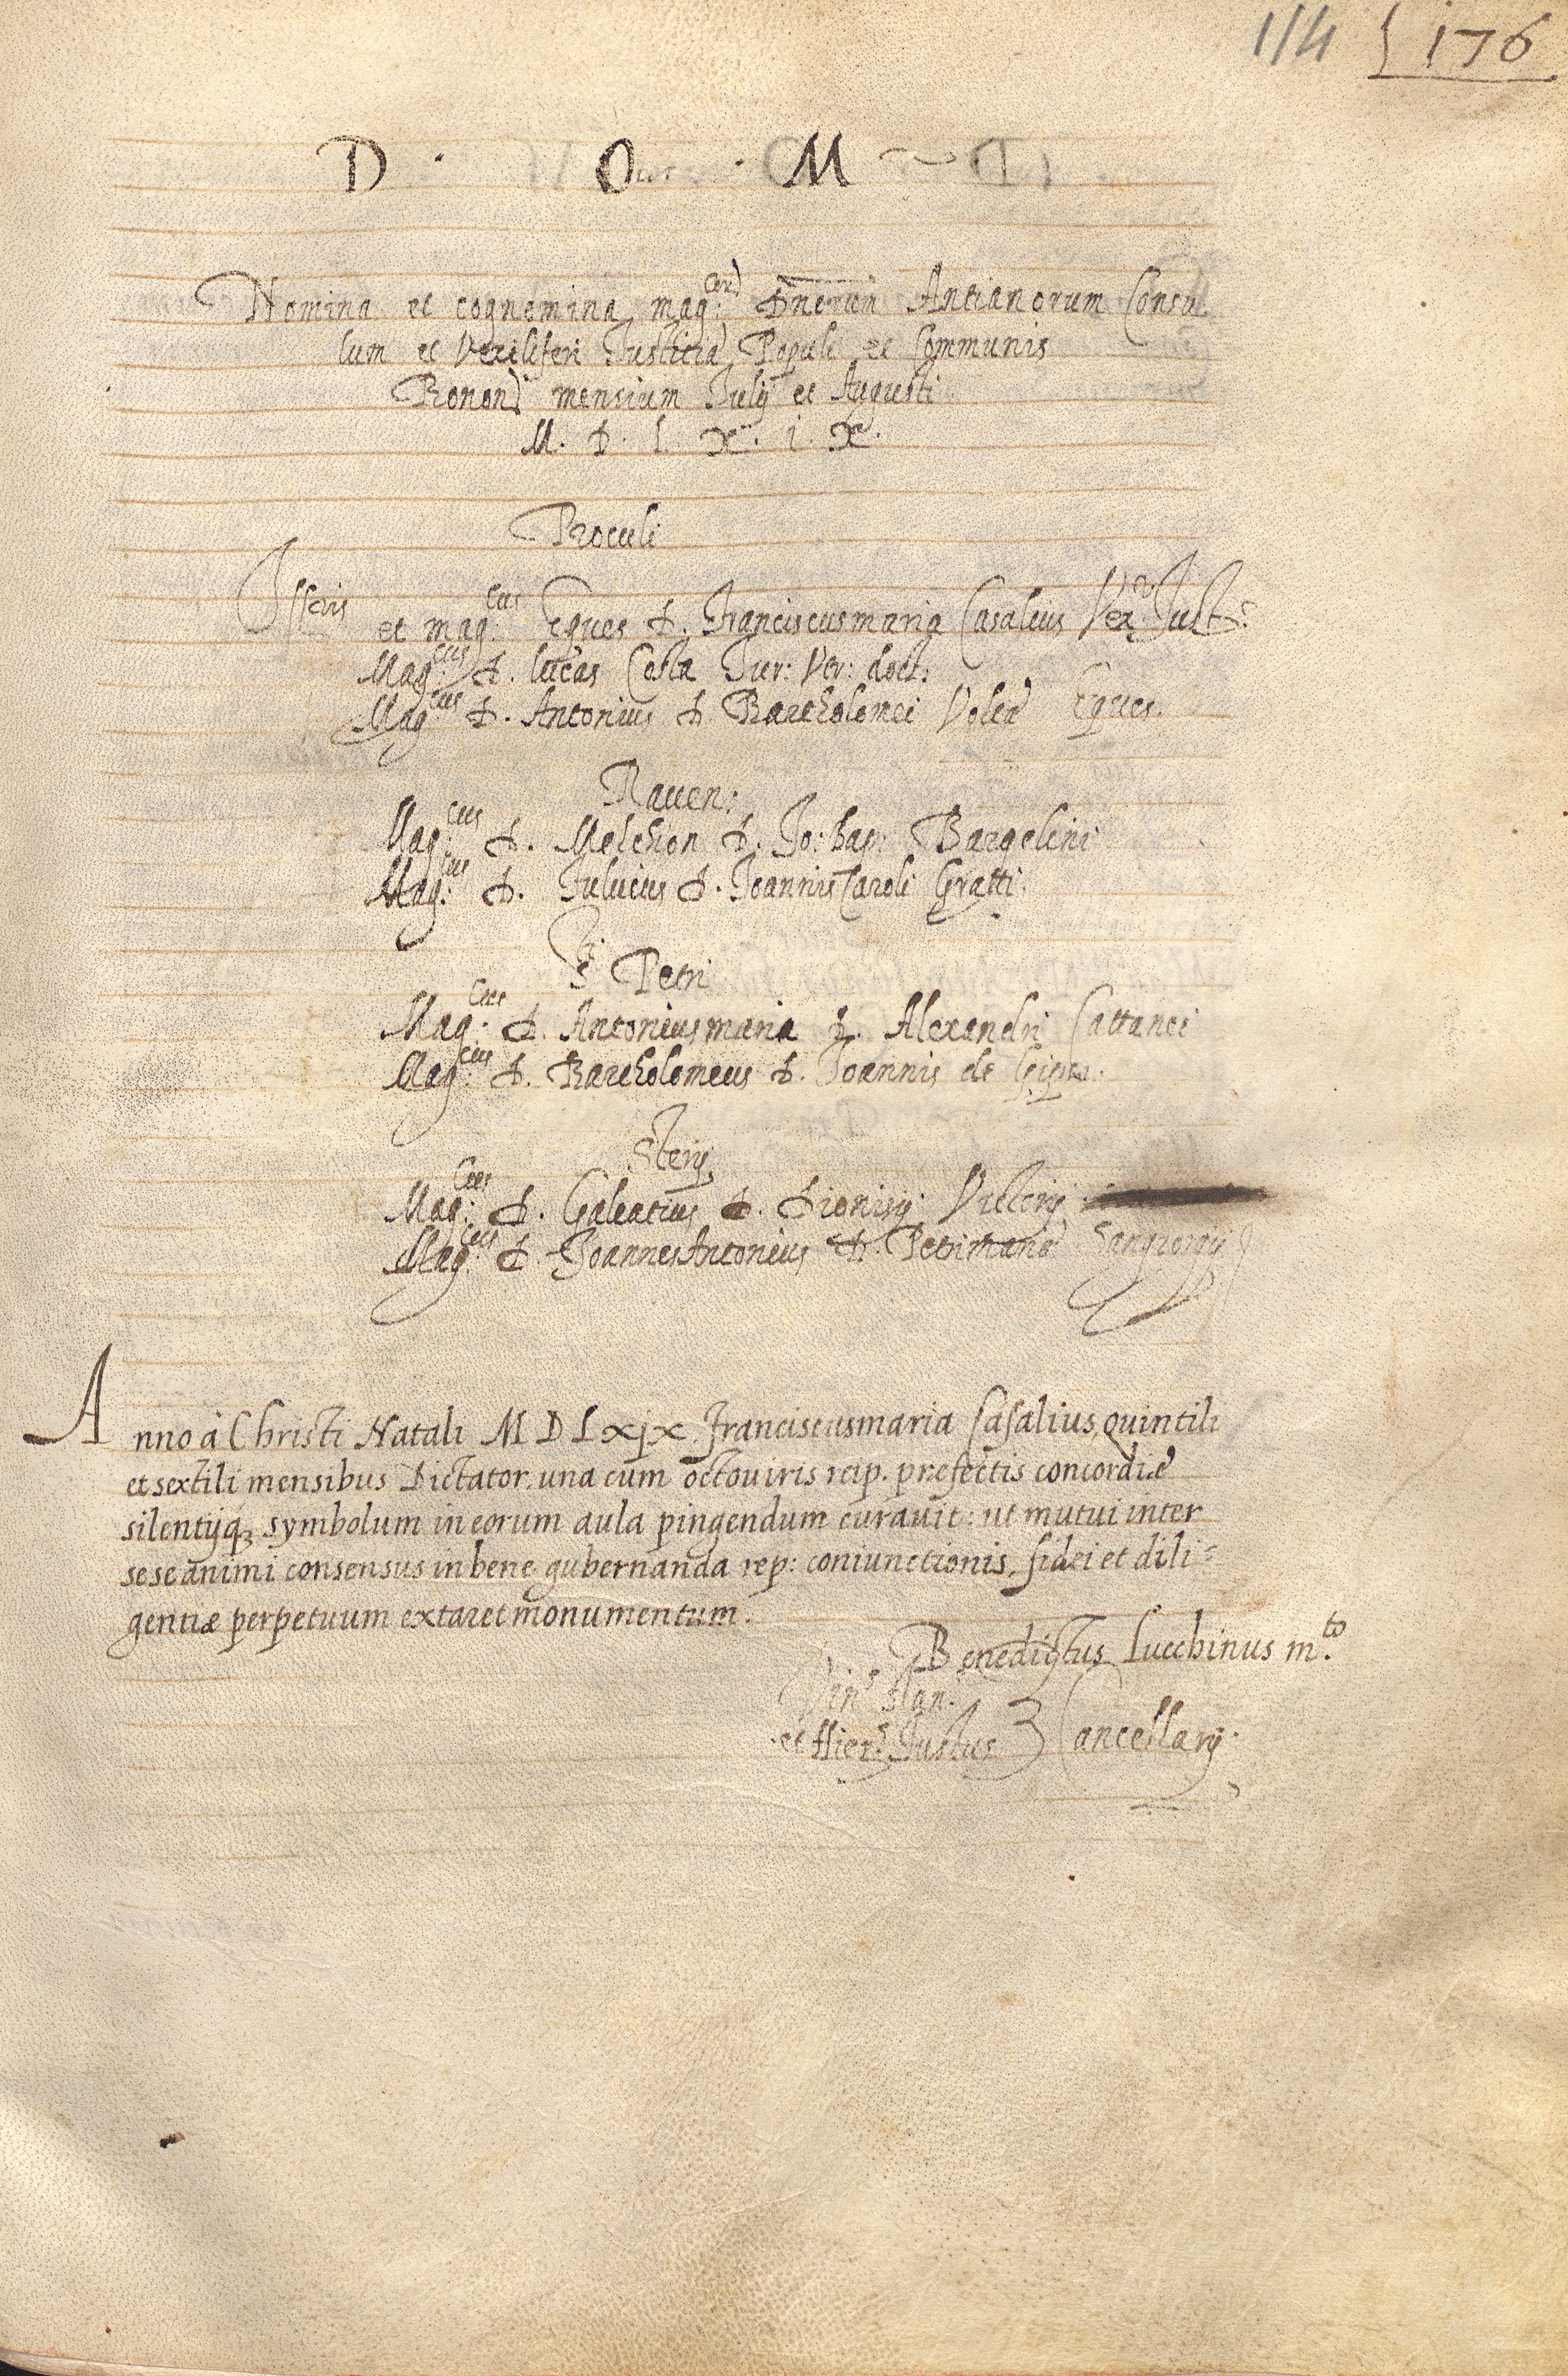 114 176
D · O · M
Nomina et cognomina mag:cor[um] Dnorum Antianorum Consu
lum et Vexiliferi Justitiæ Populi et Communis
Bonon mensium Julij et Augusti
M. D. L. X. i. X.
Proculi
Illris et mag:cus Eques D. Franciscusmaria Casalius Vex:r Just:e
Mag:cus D. Lucas Costa Jur: Utr: doct:
Mag:cus D. Antonius D. Bartholomei Volta Eques.
Raven:
Mag:cus D. Melchior D. Jo: bap: Bargelini
Mag:cus D. Fulvius D. Joannis Caroli Gratti.
S. Petri
Mag:cus D. Antoniusmaria D. Alexandri Cattanei
Mag:cus D. Bartholomeus D. Joannis de
Sterij
Mag:cus D. Galeatius D. Dionisij Victorij
Mag:cus D. Joannes Antonius D. Petrimariæ Sangiorgij
Anno à Christi Natali M D L x i x. Franciscusmaria Casalius, Quintili
et sextili mensibus Dictator, una cum octouiris reip. prefectis concordiæ
silentijq; symbolum in eorum aula pingendum curauit: ut mutui inter
sese animi consensus in bene gubernanda rep: coniunctionis, fidei et dili=
gentiæ perpetuum extaret monumentum.
Benedictus Lucchinus m.to
Vin:s Han.
et Hier:s Justus } Cancellarij.